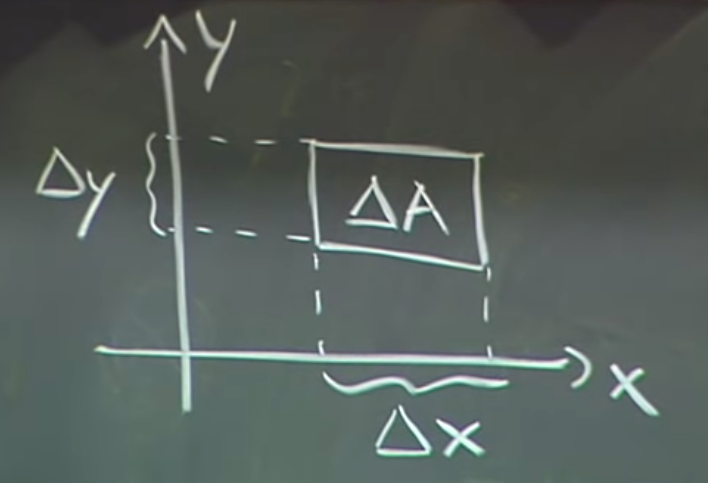 y
Δy
ΔA
x
Δx